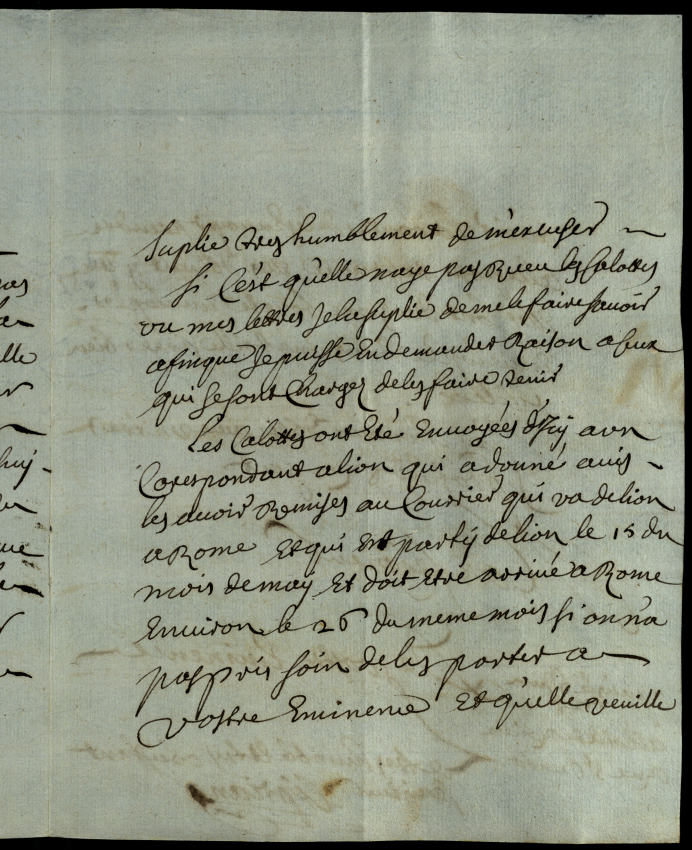 suplie tres humblement de m'excuser
si c'est qu'elle naye pas Receu les Calottes
ou mes lettres Je la suplie de me le faire scavoir
afinque Je puisse En demander Raison a ceux
qui se sont Chargez de les faire tenir
Les Calottes ont Eté Envoyées d'Icy a un
Corespondant a lion qui a donné avis
les avoir Remises au Courrier qui va de lion
a Rome Et qui Est party de lion le 15 du
mois de may Et doit Etre arrivé a Rome
Environ le 26 du meme mois si on n'a
pas pris soin de les porter a
Vostre Eminence Et qu'elle veuille